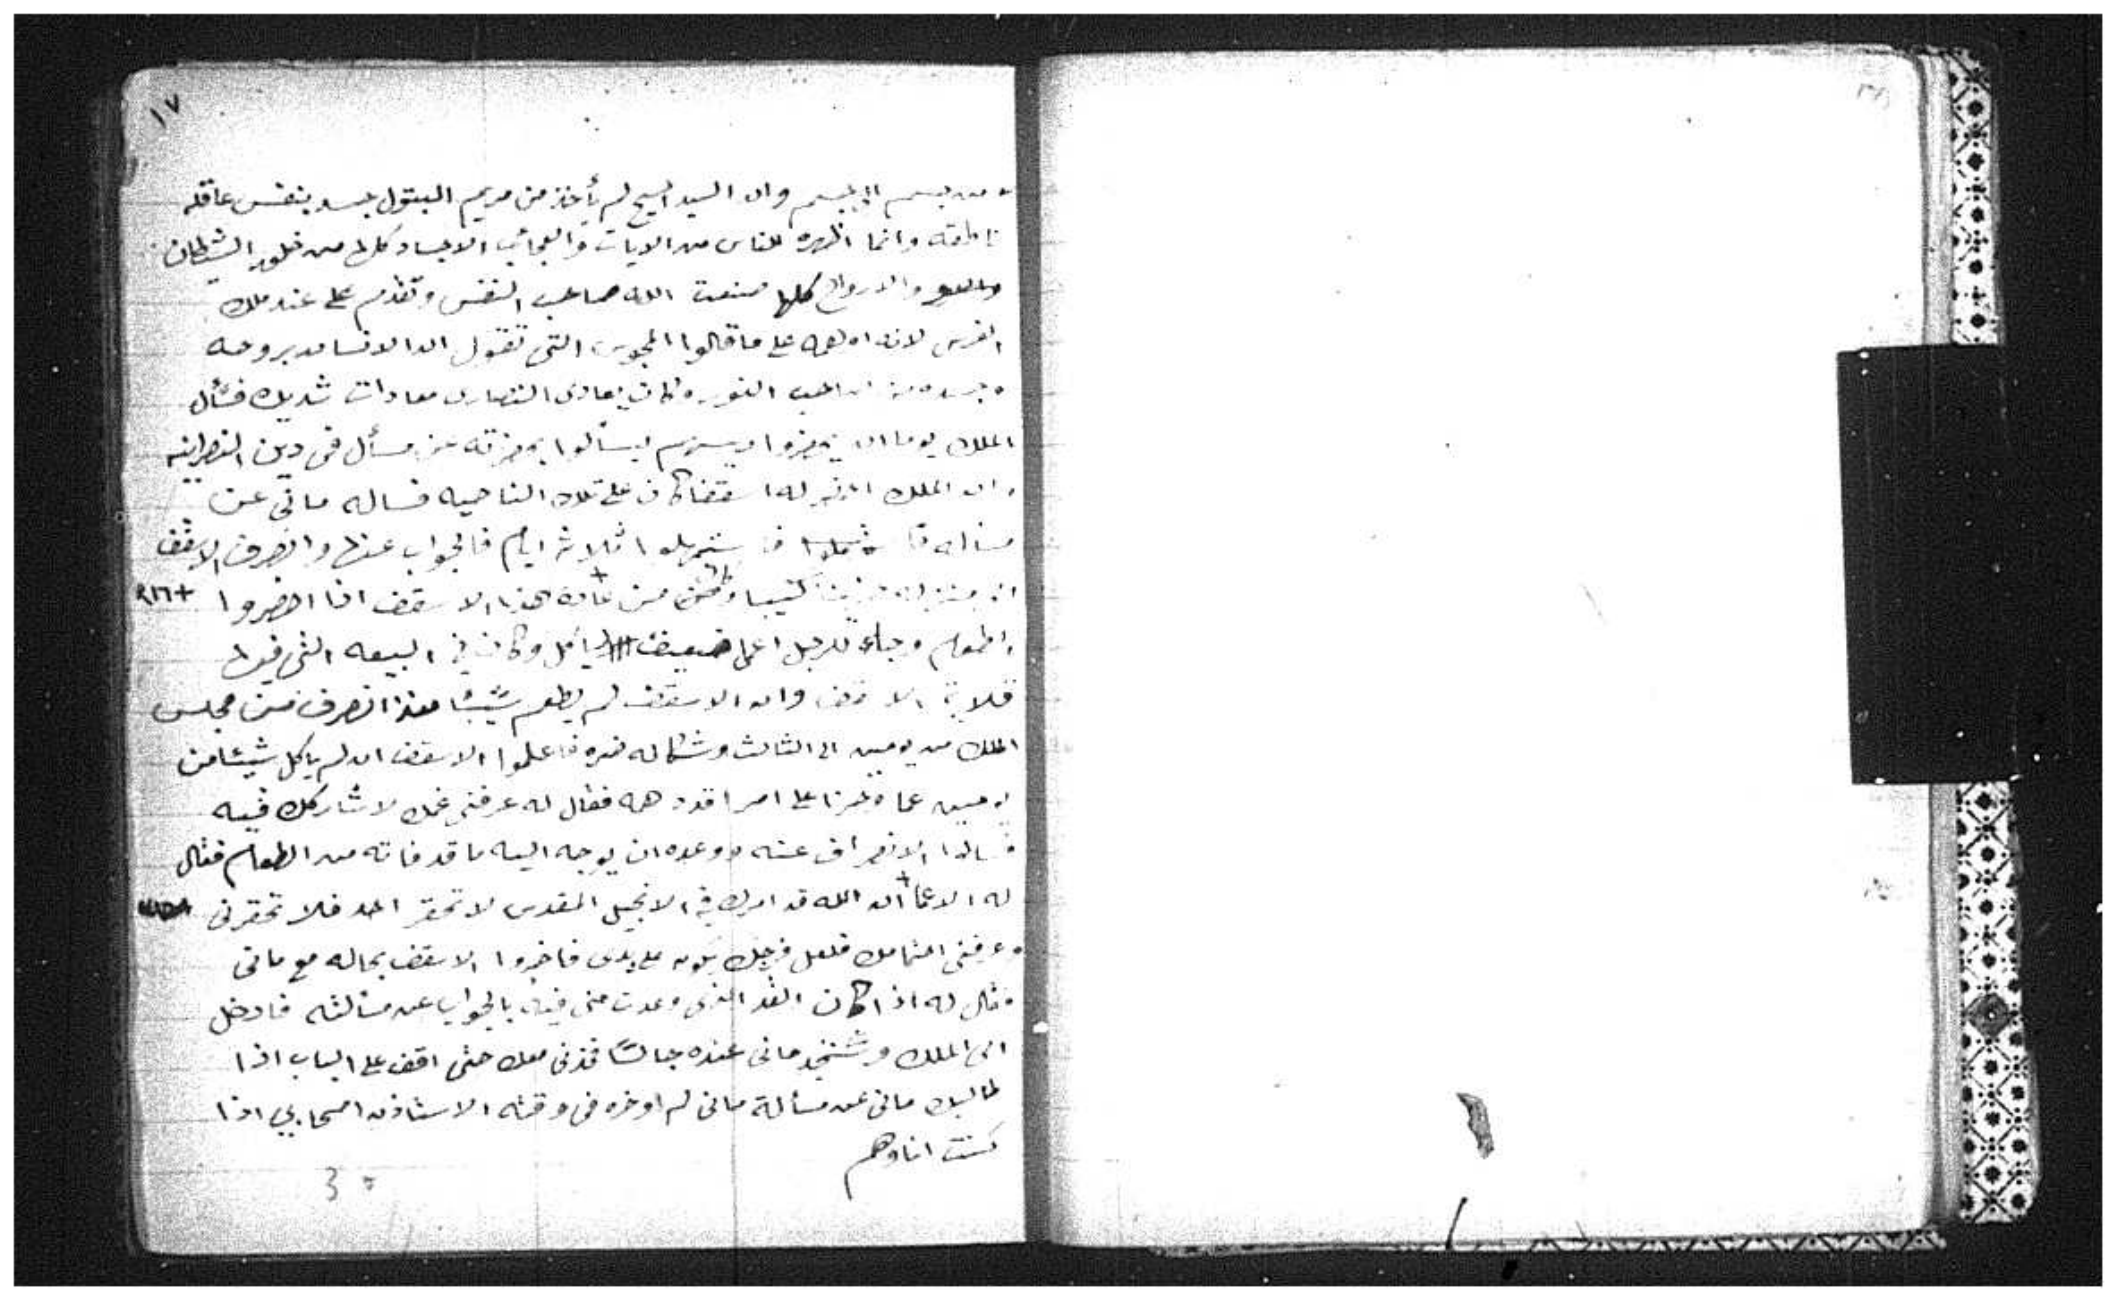 ١٧
وان السيد المسيح لم يأخذ من مريم البتول جسد بنفس عاقله
ناطقه وانما اظهره للناس من الايات والعجائب الاجساد كلها من خلقة الشيطان
والارواح كلها صنعت الله صاحب النفس وتقدم على عند ملك
الفرس لانه اوهمه على ما قالوا المجوس التى تقول ان الانسان بروحه
وجسده من صاحب النور وكان يعادى النصارى معادات شديده فسأل
الملك يوما ان يحضروا ليسألوا بحضرته عن مسأل فى دين النصرانيه
وان الملك احضر له اسقفا كان على تلك الناحيه فساله مانى عن
مساله فاستمهلوا ثلاثة ايام فالجواب عنها وانصرف الاسقف
الى منزله حزينا كئيبا وكان من عادة هذا الاسقف اذا احضروا
الطعام وجاء لرجل اعمى ضعيف ياكل وكان فى البيعه التى فيها
قلاية الاسقف وان الاسقف لم يطعم شيئا منذ انصرف من مجلس
الملك من يومين الى الثالث وشكا له ضره فاعلموا الاسقف انه لم ياكل شيئا من
يومين حزنا على امرا قد دهمه فقال له عرفنى غمك لاشاركك فيه
فسالوا الانصراف عنه ووعده ان يوجه اليه ما قد فاته من الطعام فقال
له الاعما ان الله قد امرك فى الانجيل المقدس لا تحقر احد فلا تحقرنى
وعرفنى اغتمامك فلعل فرجك يكون على يدى فاخبروا الاسقف بحاله مع مانى
وقال له اذا كان الغد الذى وعدت منى فيه بالجواب عن مسالته فادخل
الى الملك وستجد مانى عنده جالسًا فخذنى معك حتى اقف على الباب اذا
طالبك مانى عن مسألة مانى لم اوخره فى وقته الاستاذن اصحابى اذا
كنت انا وهم